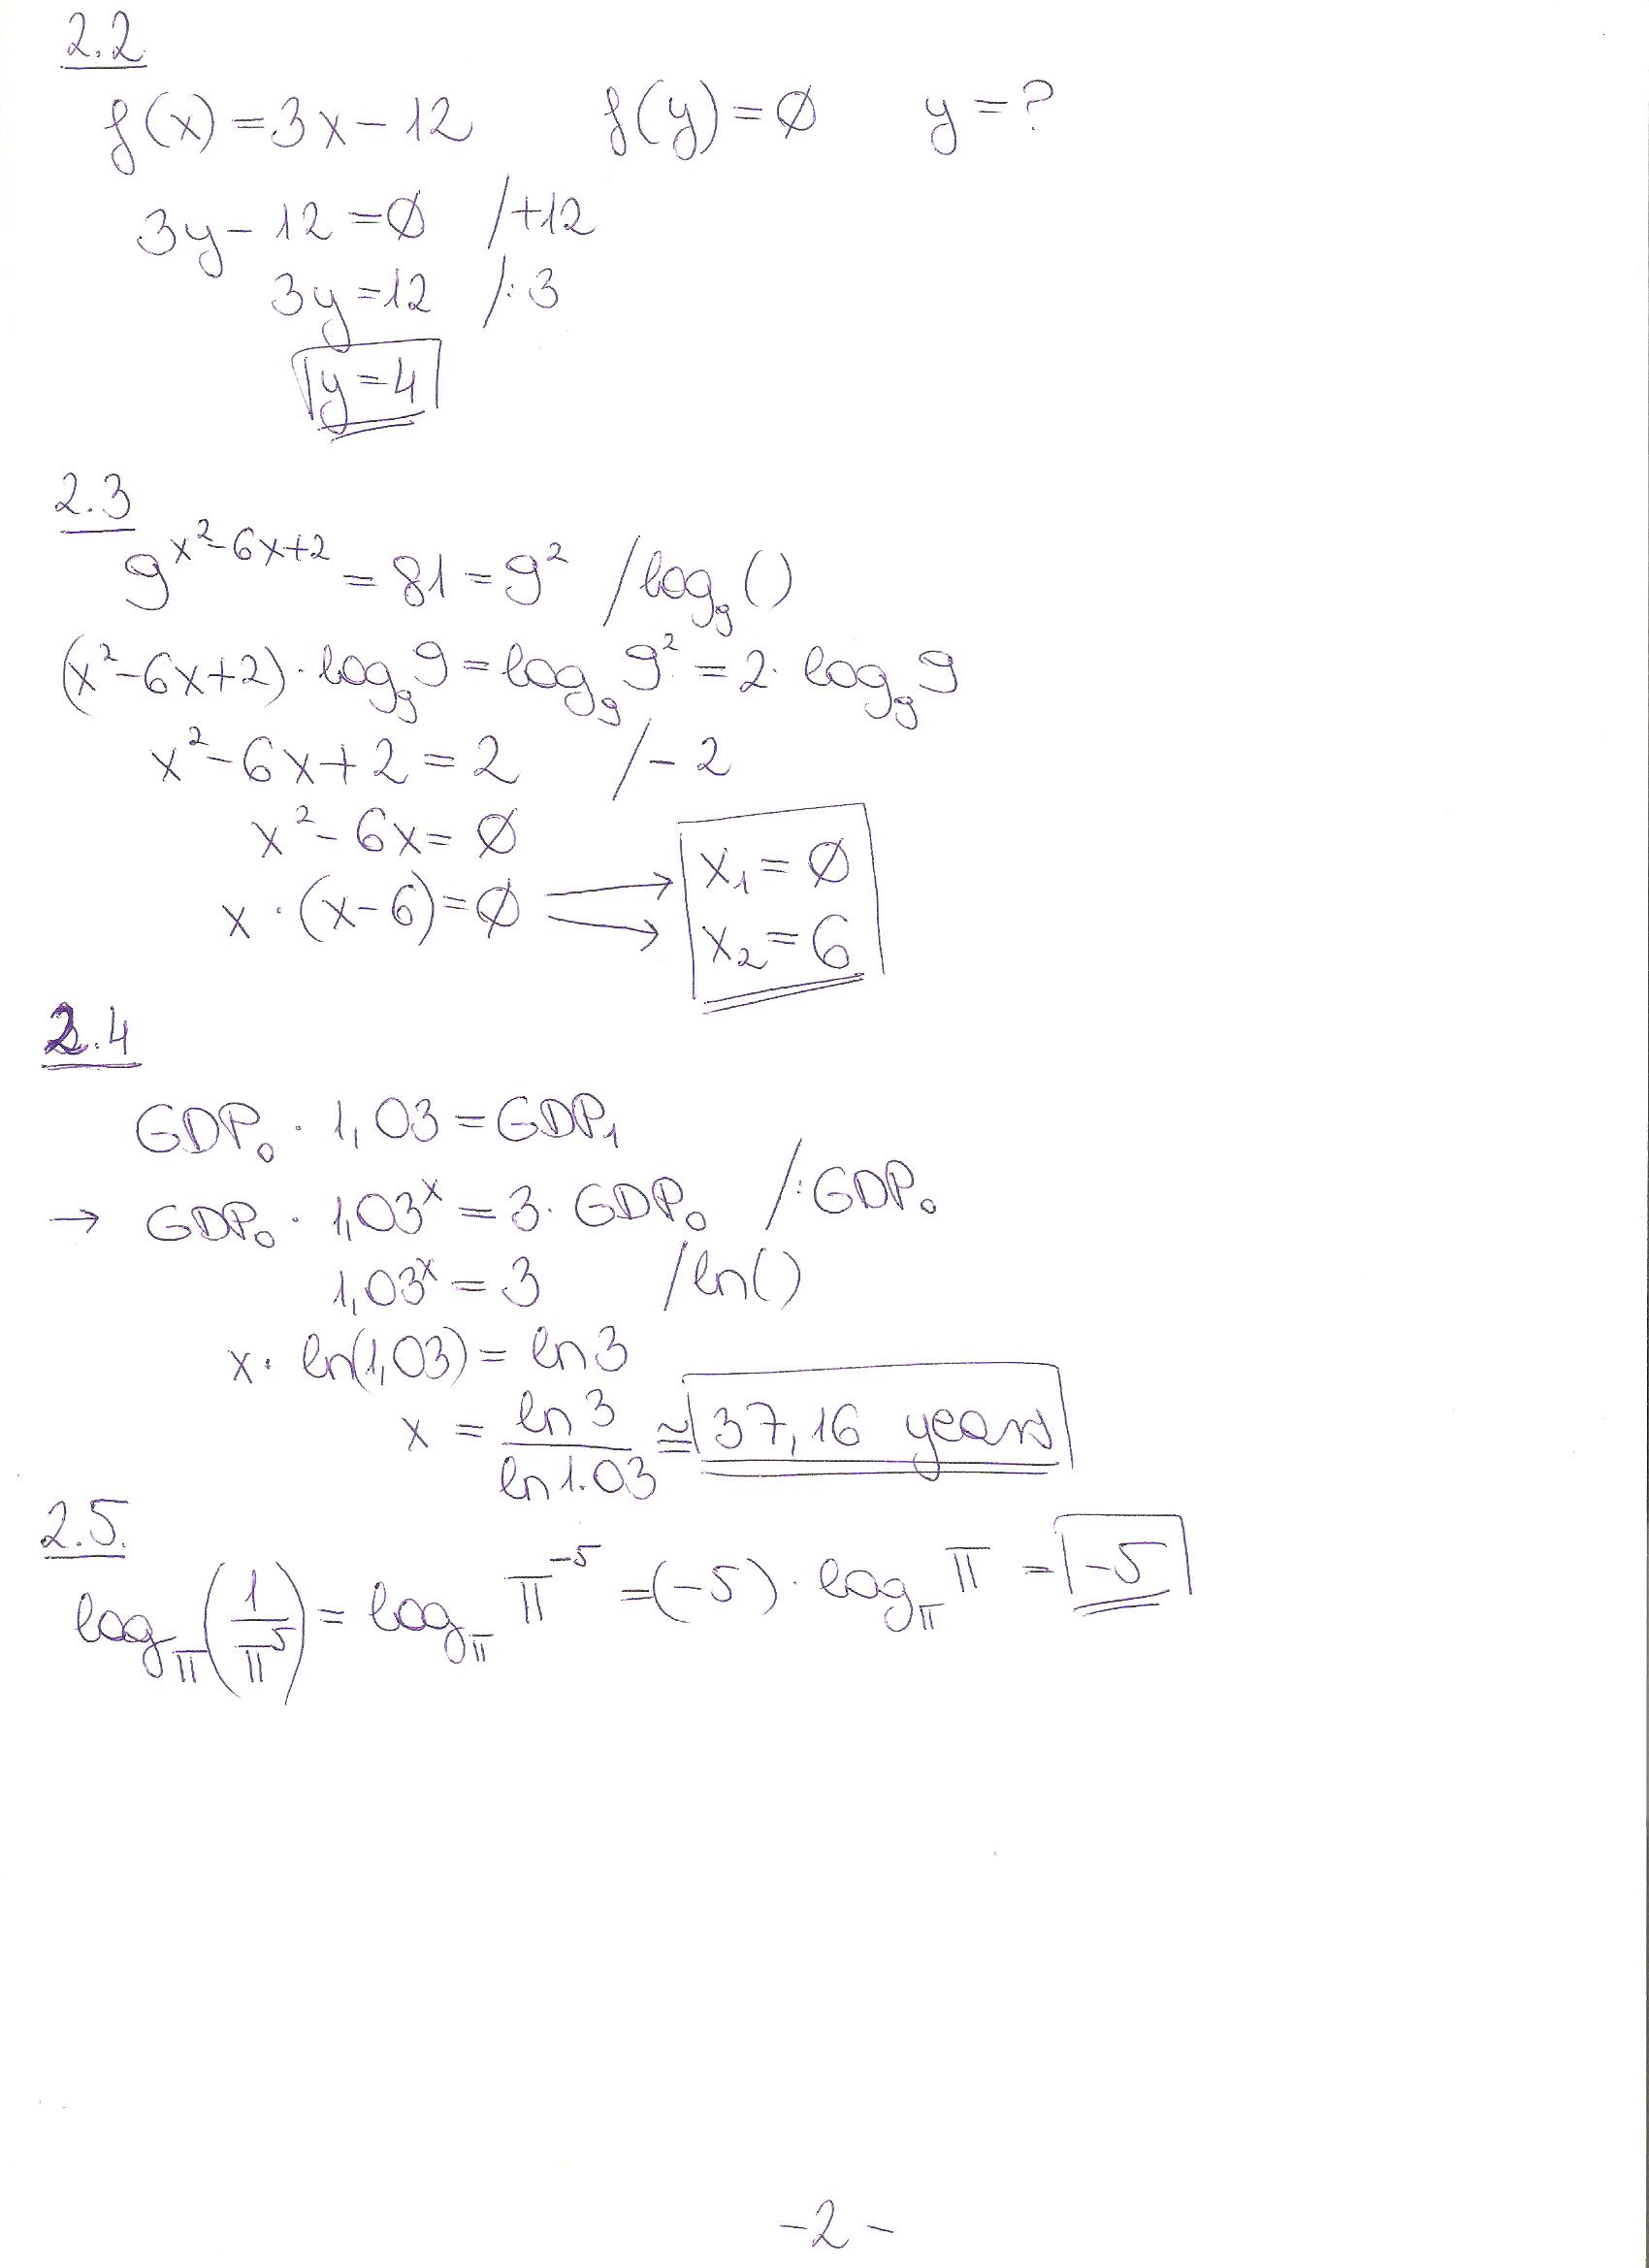 2.2
f(x)=3x-12 f(y)=∅ y=?
3y-12=∅ /+12
3y=12 /:3
y=4
2.3
9^(x²-6x+2) = 81 = 9² /log₉()
(x²-6x+2)·log₉9 = log₉9² = 2·log₉9
x²-6x+2=2 /-2
x²-6x=∅
x·(x-6)=∅ → x₁=∅
→ x₂=6
2.4
GDP₀·1,03=GDP₁
→ GDP₀·1,03ˣ=3·GDP₀ /:GDP₀
1,03ˣ=3 /ln()
x·ln(1,03)=ln3
x = ln3/ln1.03 ≅ 37,16 years
2.5.
log_π(1/π⁵) = log_π π⁻⁵ = (-5)·log_π π = -5
-2-